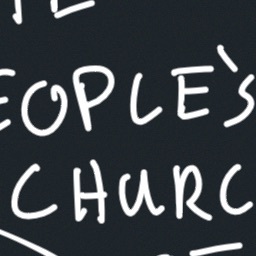 EOPLE'S
CHURC